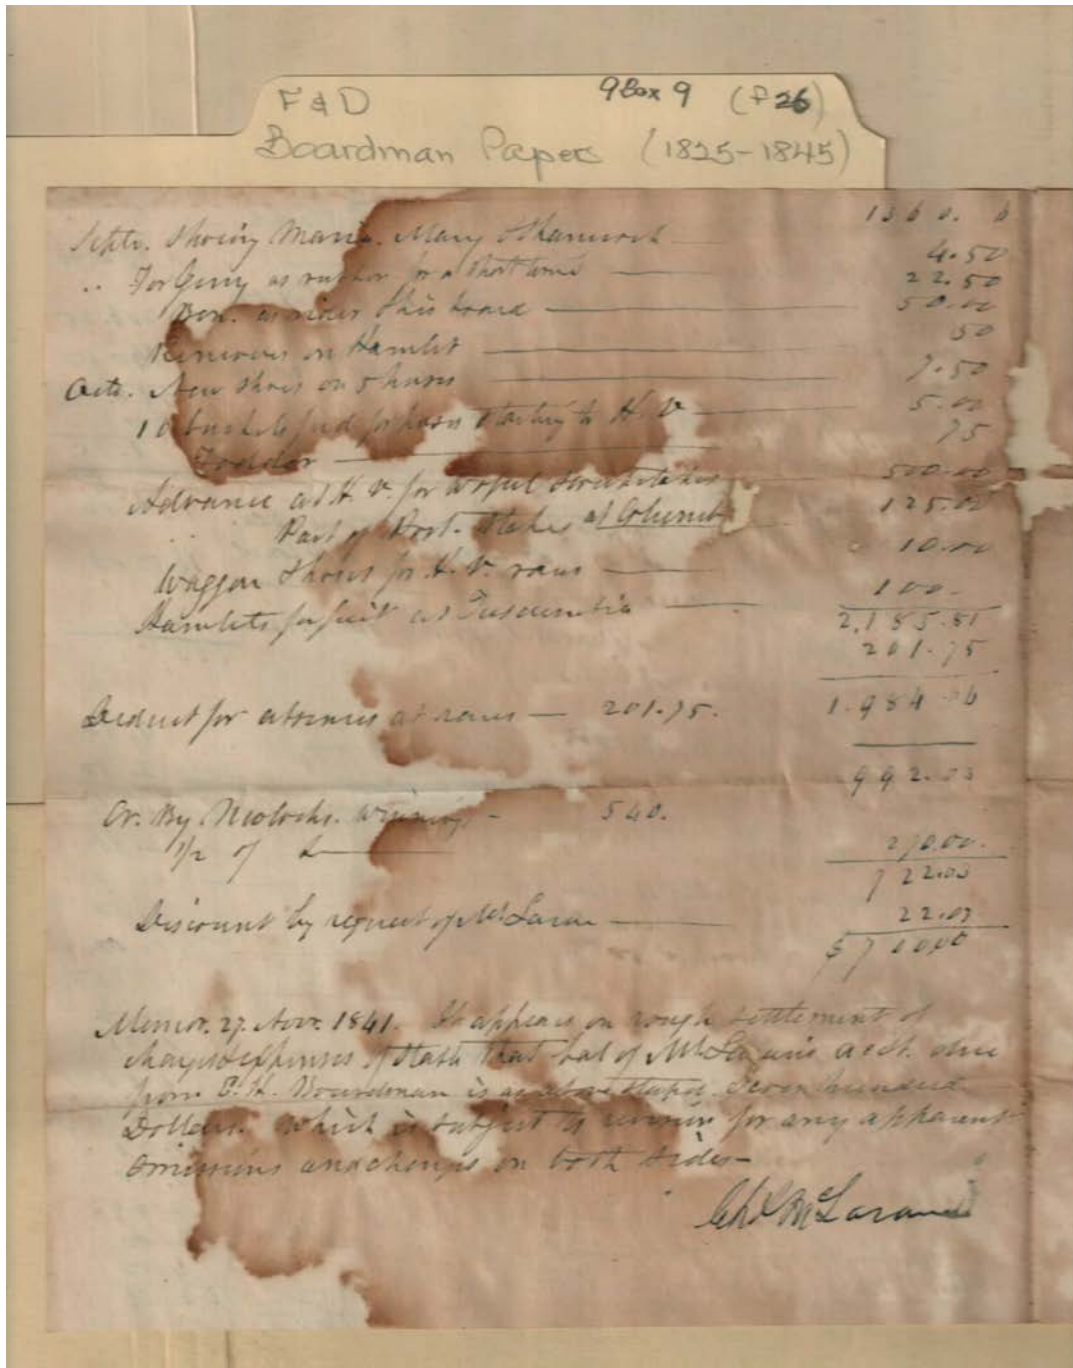 F & D 9 Box 9 (F 26)
Boardman Papers (1825-1845)
1360. 6
Septr. Shoing Maria. Mary & Shamrock 4.50
" For Jimy as rubber for a short time 22.50
Ben. as rider & his board 50.00
Removes on Hamlet 50
Octr. New Shoes on 5 horses 7.50
10 bushels for horses starting to H. V. 5.00
Fodder 75
Advance at H. V. for Stakes 500.00
Part of Post. Stakes at Columb 125.00
Waggon Shoes for H. V. races 10.00
Hamlets forfeit at Tuscumbia 100.
2,185.81
201.75
Deduct for absence at races — 201.75. 1.984.06
992.03
Cr. By Molochs. winnings - 540.
1/2 of 270.00.
722.03
Discount by request of McLaran 22.03
$700.00
Memor. 27. Novr. 1841. It appears on rough settlement of
charges & expenses of Stable that bal of McLarans acct. due
from E. H. Boardman is as above stated Seven hundred
Dollars. Which is subject to revision for any apparent
omissions and charges on both sides—
Chs McLaran